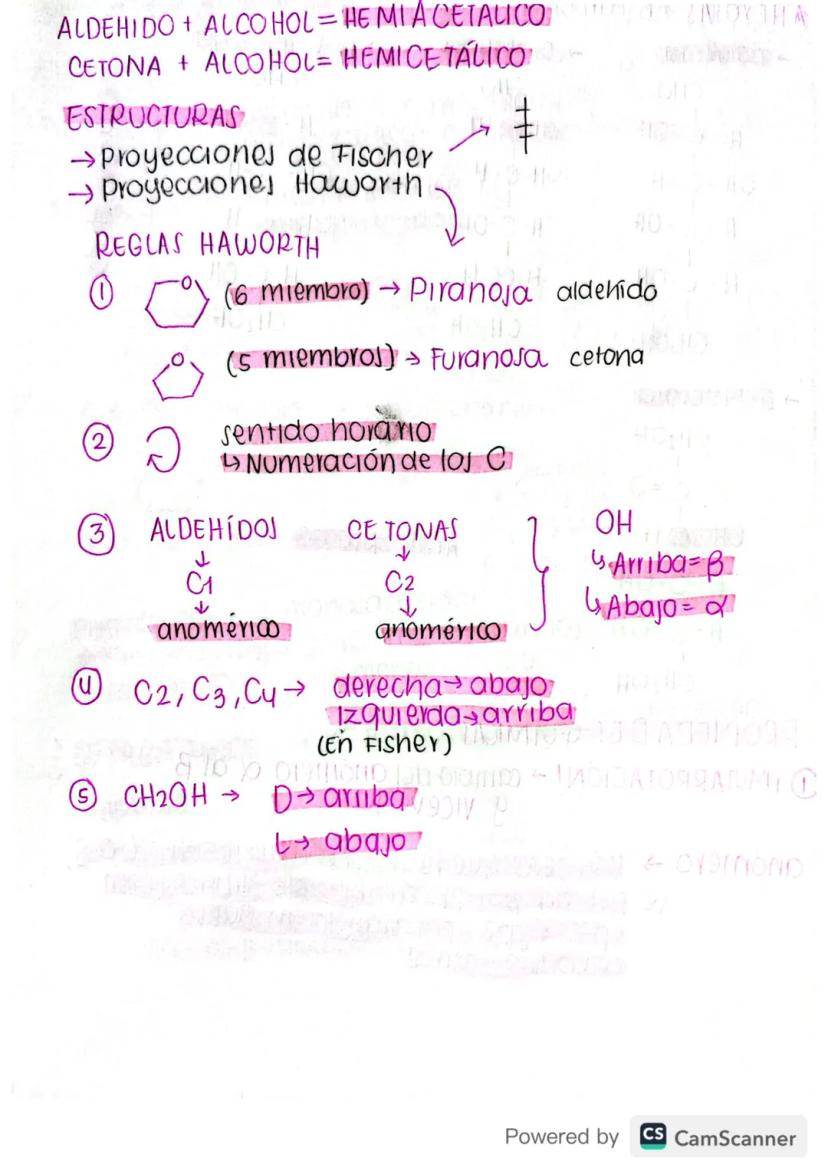 ALDEHIDO + ALCOHOL = HEMIACETALICO
CETONA + ALCOHOL = HEMICETÁLICO
ESTRUCTURAS
→ Proyecciones de Fischer
→ Proyecciones Haworth
REGLAS HAWORTH
① O (6 miembro) → Piranosa aldehido
O (5 miembros) → Furanosa cetona
② sentido horario
↳ Numeración de los C
③ ALDEHÍDOS CETONAS OH
↓ ↓ ↳ Arriba = β
C1 C2 ↳ Abajo = α
↓ ↓
anomérico anomérico
④ C2, C3, C4 → derecha → abajo
Izquierda → arriba
(En Fisher)
⑤ CH2OH → D → arriba
L → abajo
Powered by CS CamScanner